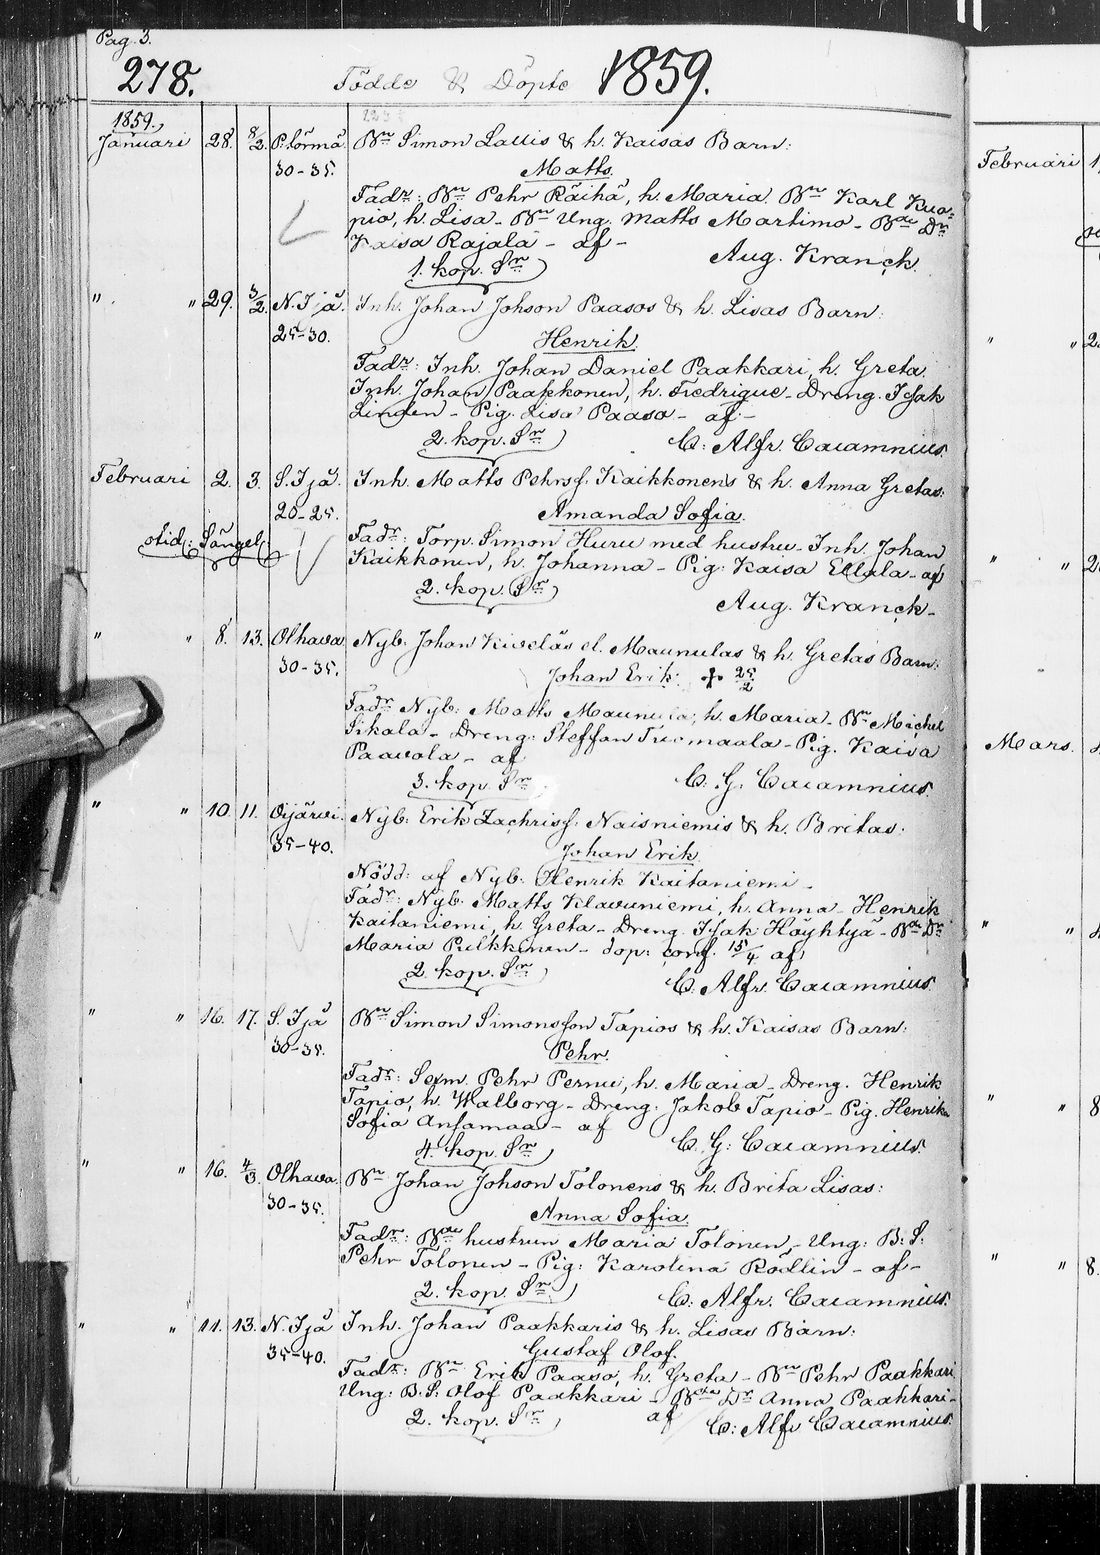 Pag. 3.
278. Födde & Döpte 1859.
1859.
Januari 28. 8/2. P. Sörmä Bn Simon Lallis & h. Kaisas Barn:
30-35. Matts.
Fadr: Bn Pehr Räihä, h. Maria. Bn Karl Kuo-
pio, h. Lisa - Bn Ung. Matts Martimo - Bde Dr
Kaisa Rajala - af -
Aug. Kranck.
1. kop. Sr
" " 29. 3/2. N. Ijå. Inh. Johan Johson Paasos & h. Lisas Barn:
25-30. Henrik.
Fadr: Inh. Johan Daniel Paakkari, h. Greta.
Inh. Johan Paakkonen, h. Fredrique - Dreng. Isak
Linden - Pig. Lisa Paaso - af -
2. kop. Sr C: Alfr. Caiamnius.
Februari 2. 3. S. Ijå. Inh. Matts Pehrsf. Kaikkonens & h. Anna Gretas:
20-25. Amanda Sofia.
Fadr: Torp. Simon Huru med hustru - Inh. Johan
Kaikkonen, h. Johanna - Pig: Kaisa Ellala - af
2. kop. Sr
Aug. Kranck -
" " 8. 13. Olhava Nyb. Johan Kiveläs el. Maunulas & h. Gretas Barn:
30-35. Johan Erik. + 25/2
Fadr Nyb: Matts Maunula, h. Maria - Bn Michel
Sikala - Dreng: Steffan Tuomaala - Pig. Kaisa
Paavola - af
3. kop. Sr C. G. Caiamnius.
" " 10. 11. Oijärvi. Nyb: Erik Zachrisf. Naisniemis & h. Britas:
35-40. Johan Erik.
Nödd: af Nyb. Henrik Kaitaniemi -
Fadr: Nyb. Matts Klavuniemi, h. Anna - Henrik
Kaitaniemi, h. Greta - Dreng. Isak Höyhtyä - Bde Dr
Maria Pulkkinen - dop: conf. 15/4 af
2. kop. Sr C. Alfr. Caiamnius.
" " 16. 17. S. Ijå Bn Simon Simonsson Tapios & h. Kaisas Barn:
30-35. Pehr.
Fadr: Sexm. Pehr Pernu, h. Maria - Dreng. Henrik
Tapio, h. Walborg - Dreng: Jakob Tapio - Pig. Henrika
Sofia Ansamaa - af
4. kop. Sr C. G: Caiamnius.
" " 16. 4/3. Olhava Bn Johan Johson Tolonens & h. Brita Lisas:
30-35. Anna Sofia.
Fadr: Bde hustrun Maria Tolonen, - Ung: B: S:
Pehr Tolonen - Pig: Karolina Rödlin - af -
2. kop. Sr C. Alfr. Caiamnius.
" " 11. 13. N. Ijå Inh. Johan Paakkaris & h. Lisas Barn:
35-40. Gustaf Olof.
Fadr: Bn Erik Paaso, h. Greta - Bn Pehr Paakkari,
Ung: B. S: Olof Paakkari - Bde Dr Anna Paakkari -
2. kop. Sr af C: Alfr Caiamnius.
Februari
Mars.